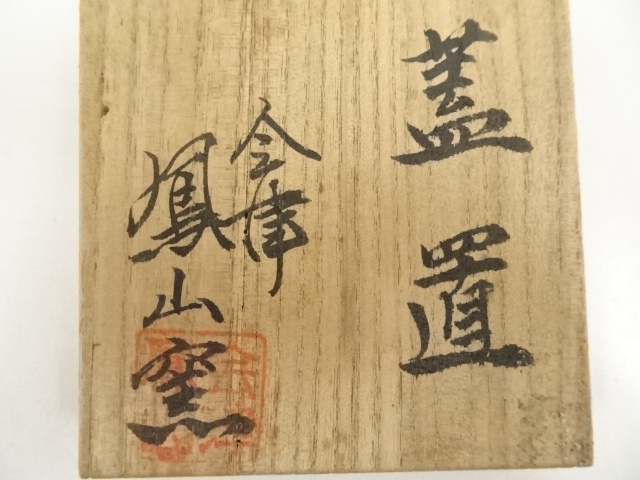 蓋置
会津
鳳山窯